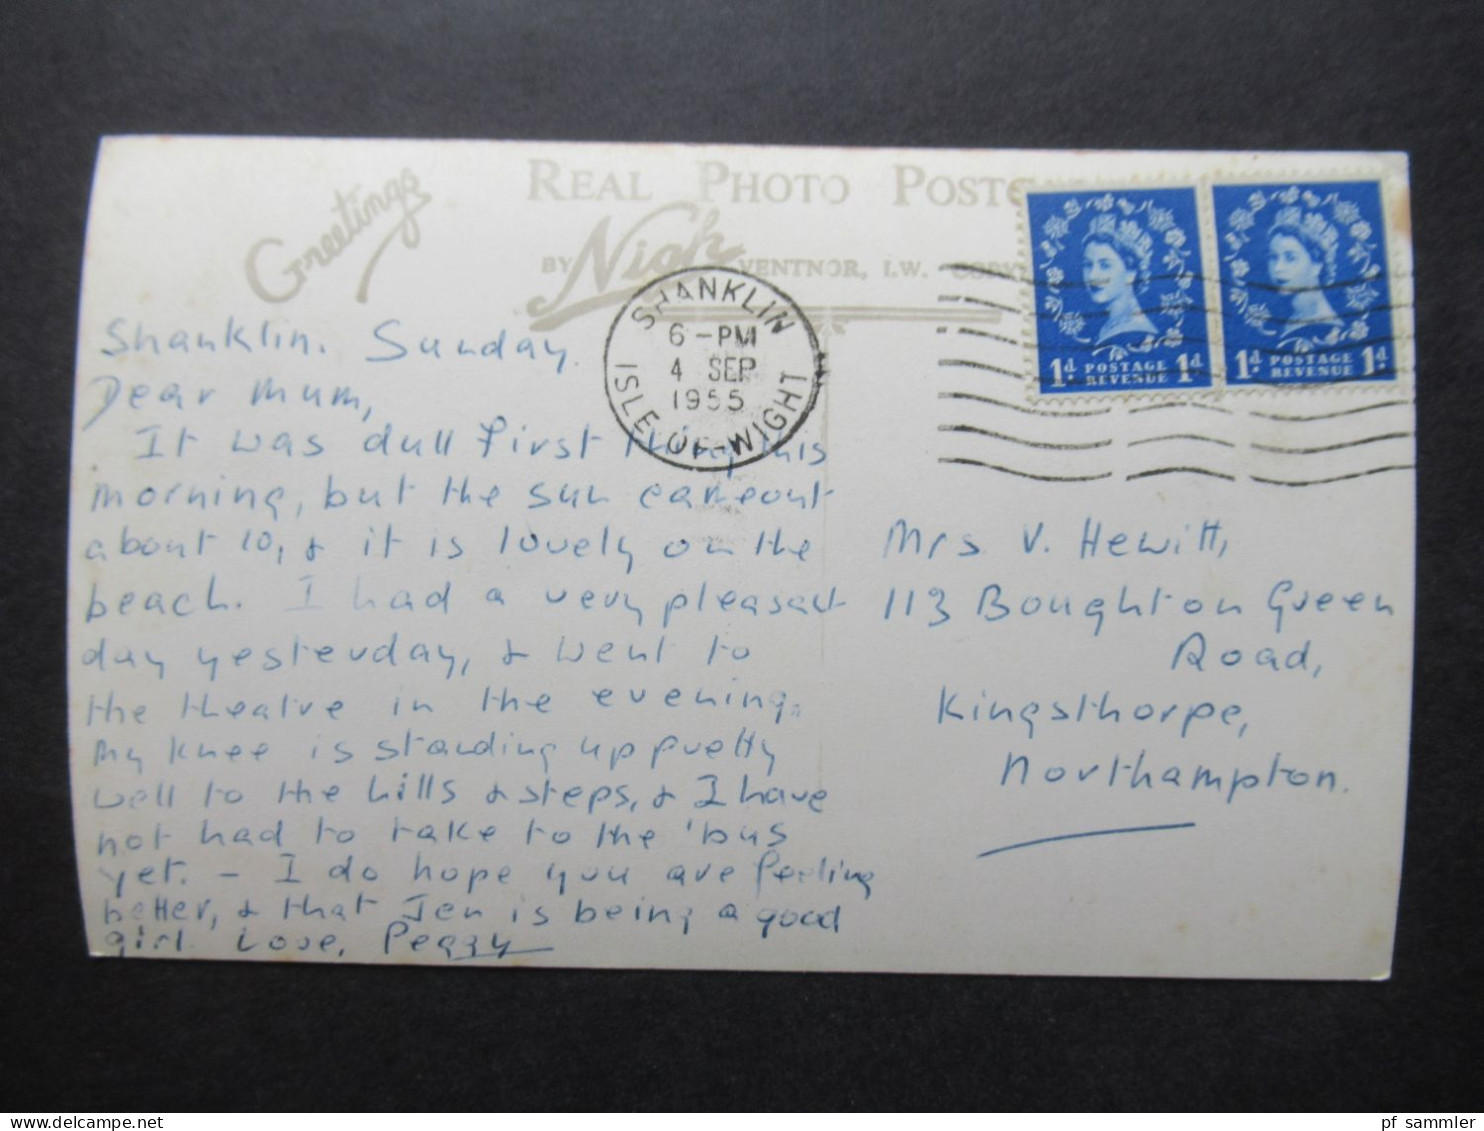 Greetings
REAL PHOTO POSTC
BY Nigh VENTNOR, I.W. COPY
SHANKLIN
6-PM
4 SEP
1955
ISLE-OF-WIGHT
1d POSTAGE REVENUE 1d
1d POSTAGE REVENUE 1d
Shanklin. Sunday.
Dear Mum,
It was dull first thing this
morning, but the sun came out
about 10, & it is lovely on the
beach. I had a very pleasant
day yesterday, & went to
the theatre in the evening.
My knee is standing up pretty
well to the hills & steps, & I have
not had to take to the 'bus
yet. - I do hope you are feeling
better, & that Jen is being a good
girl. Love, Peggy
Mrs V. Hewitt,
113 Boughton Green
Road,
Kingsthorpe,
Northampton.
pf sammler